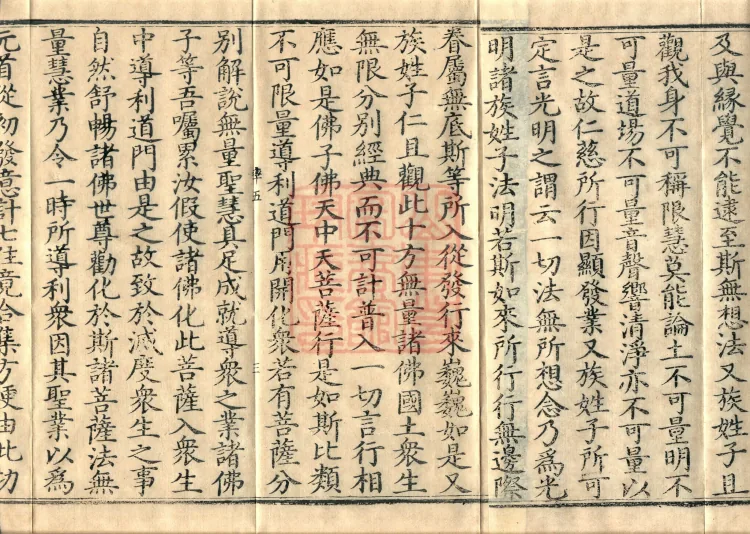 及與緣覺不能逮至斯無想法又族姓子且
觀我身不可稱限慧莫能論土不可量明不
可量道場不可量音聲響清淨亦不可量以
是之故仁慈所行因顯發業又族姓子所可
定言光明之謂云一切法無所想念乃爲光
明諸族姓子法明若斯如來所行行無邊際
眷屬無底斯等所入從發行來巍巍如是又
族姓子仁且觀此十方無量諸佛國土衆生
無限分別經典而不可計普入一切言行相
應如是佛子佛天中天菩薩行是如斯比類
不可限量導利道門用開化衆若有菩薩分
五 三
別解說無量聖慧具足成就導衆之業諸佛
子等吾囑累汝假使諸佛化此菩薩入衆生
中導利道門由是之故致於滅度衆生之事
自然舒暢諸佛世尊勸化於斯諸菩薩法無
量慧業乃令一時所導利衆因其聖業以爲
元首從初發意計七住竟合集方便由此切